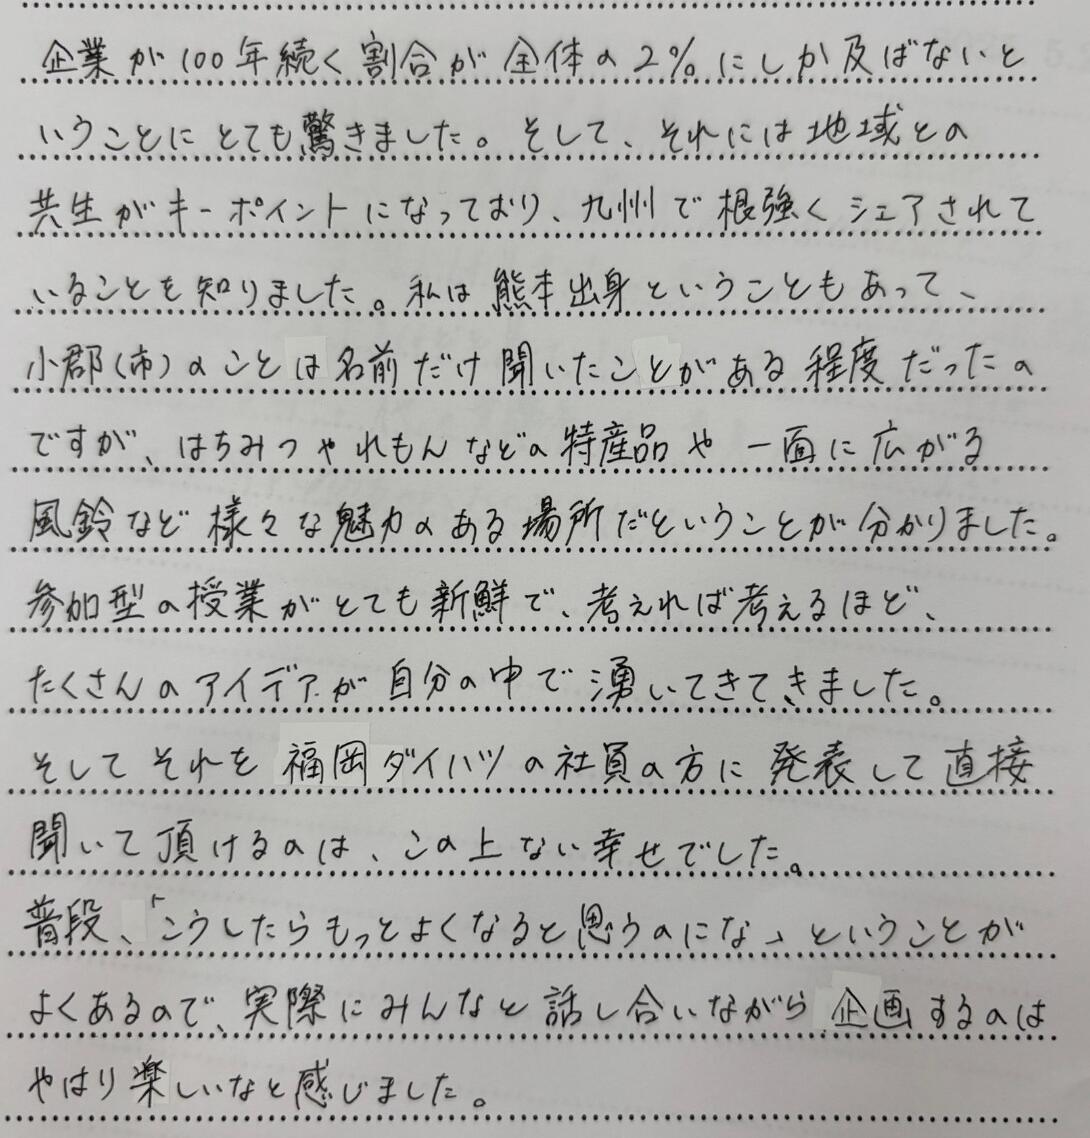 企業が100年続く割合が全体の2%にしか及ばないと
いうことにとても驚きました。そして、それには地域との
共生がキーポイントになっており、九州で根強くシェアされて
いることを知りました。私は熊本出身ということもあって、
小郡(市)のことは名前だけ聞いたことがある程度だったの
ですが、はちみつやれもんなどの特産品や一面に広がる
風鈴など様々な魅力のある場所だということが分かりました。
参加型の授業がとても新鮮で、考えれば考えるほど、
たくさんのアイデアが自分の中で湧いてきてきました。
そしてそれを福岡ダイハツの社員の方に発表して直接
聞いて頂けるのは、この上ない幸せでした。
普段、「こうしたらもっとよくなると思うのにな」ということが
よくあるので、実際にみんなと話し合いながら企画するのは
やはり楽しいなと感じました。